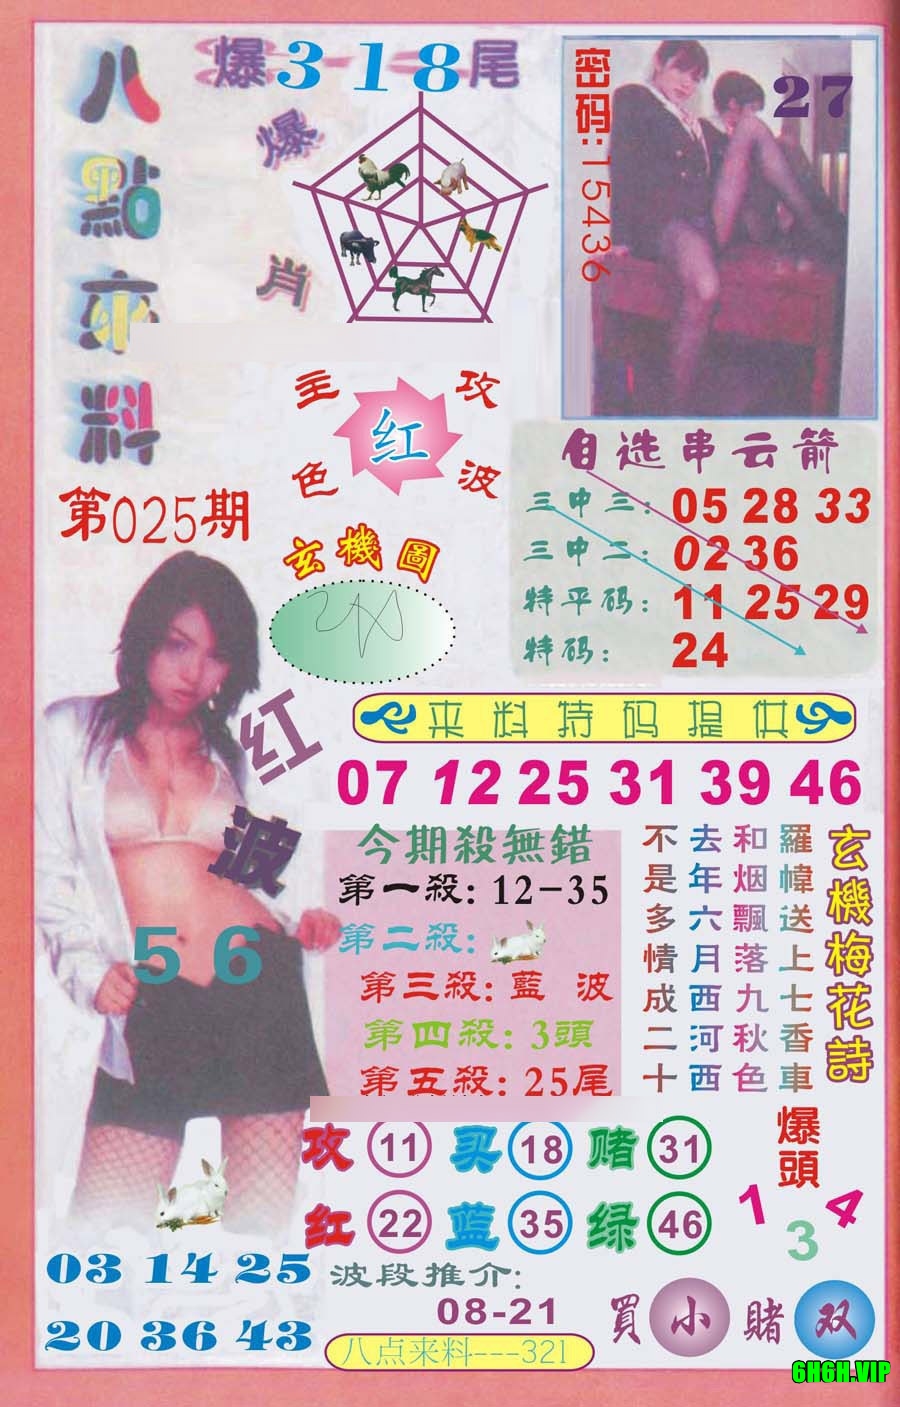 八點來料
爆318尾
爆肖
密码:15436
27
主攻
红
色波
第025期
玄機圖
自选串云箭
三中三: 05 28 33
三中二: 02 36
特平码: 11 25 29
特码: 24
来料特码提供
07 12 25 31 39 46
红波
56
今期殺無錯
第一殺: 12-35
第二殺:
第三殺: 藍波
第四殺: 3頭
第五殺: 25尾
玄機梅花詩
羅幃送上七香車
和烟飄落九秋色
去年六月西河西
不是多情成二十
攻 11 买 18 赌 31
红 22 蓝 35 绿 46
爆頭
1 3 4
03 14 25
20 36 43
波段推介:
08-21
買小賭双
八点来料---321
6H6H.VIP